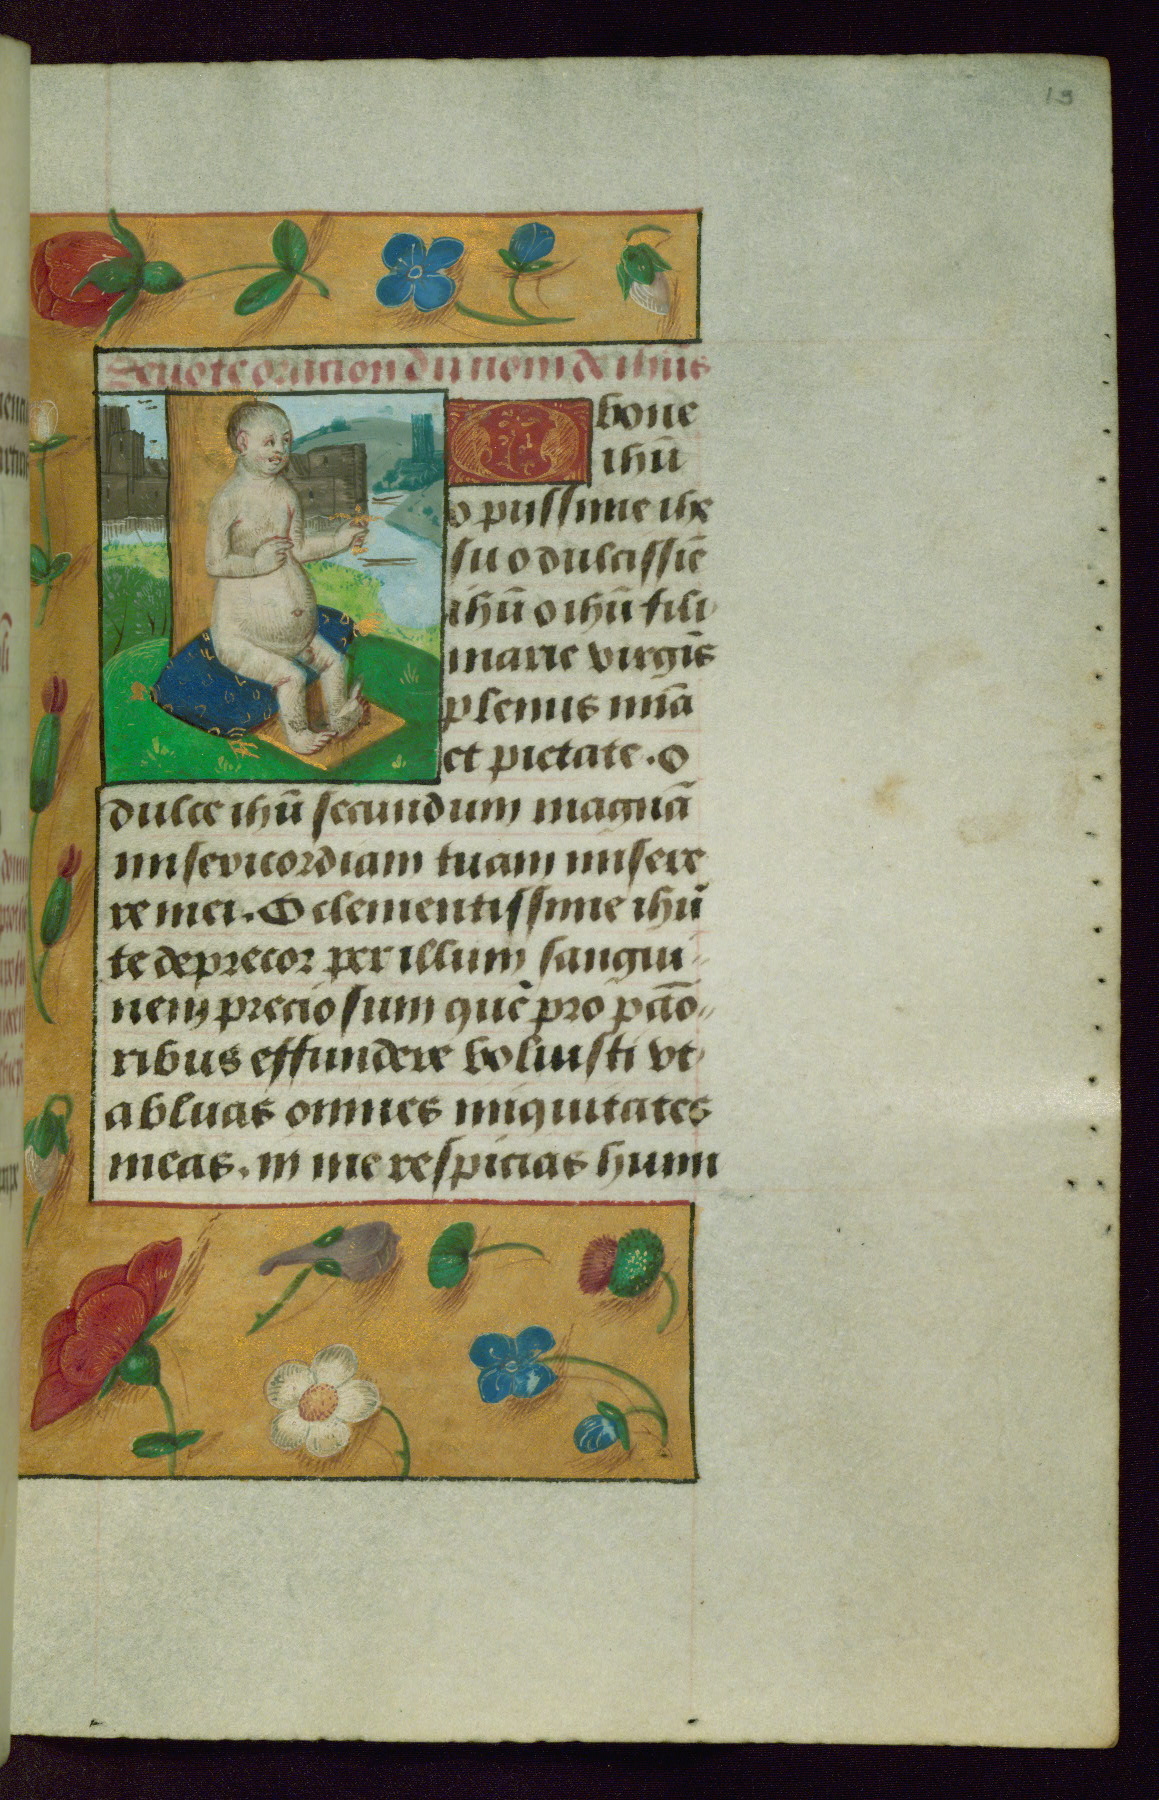 19
Deuote oracion du nom de ihūs
O bone
ihū
o piissime ihe
su o dulcissīe
ihū o ihū fili
marie virgīs
plenus mīa
et pietate. O
dulce ihū secundum magnā
misericordiam tuam misere
re mei. O clementissime ihū
te deprecor per illum sangui
nem preciosum quē pro pctō
ribus effundere voluisti vt
abluas omnes iniquitates
meas. in me respicias humi